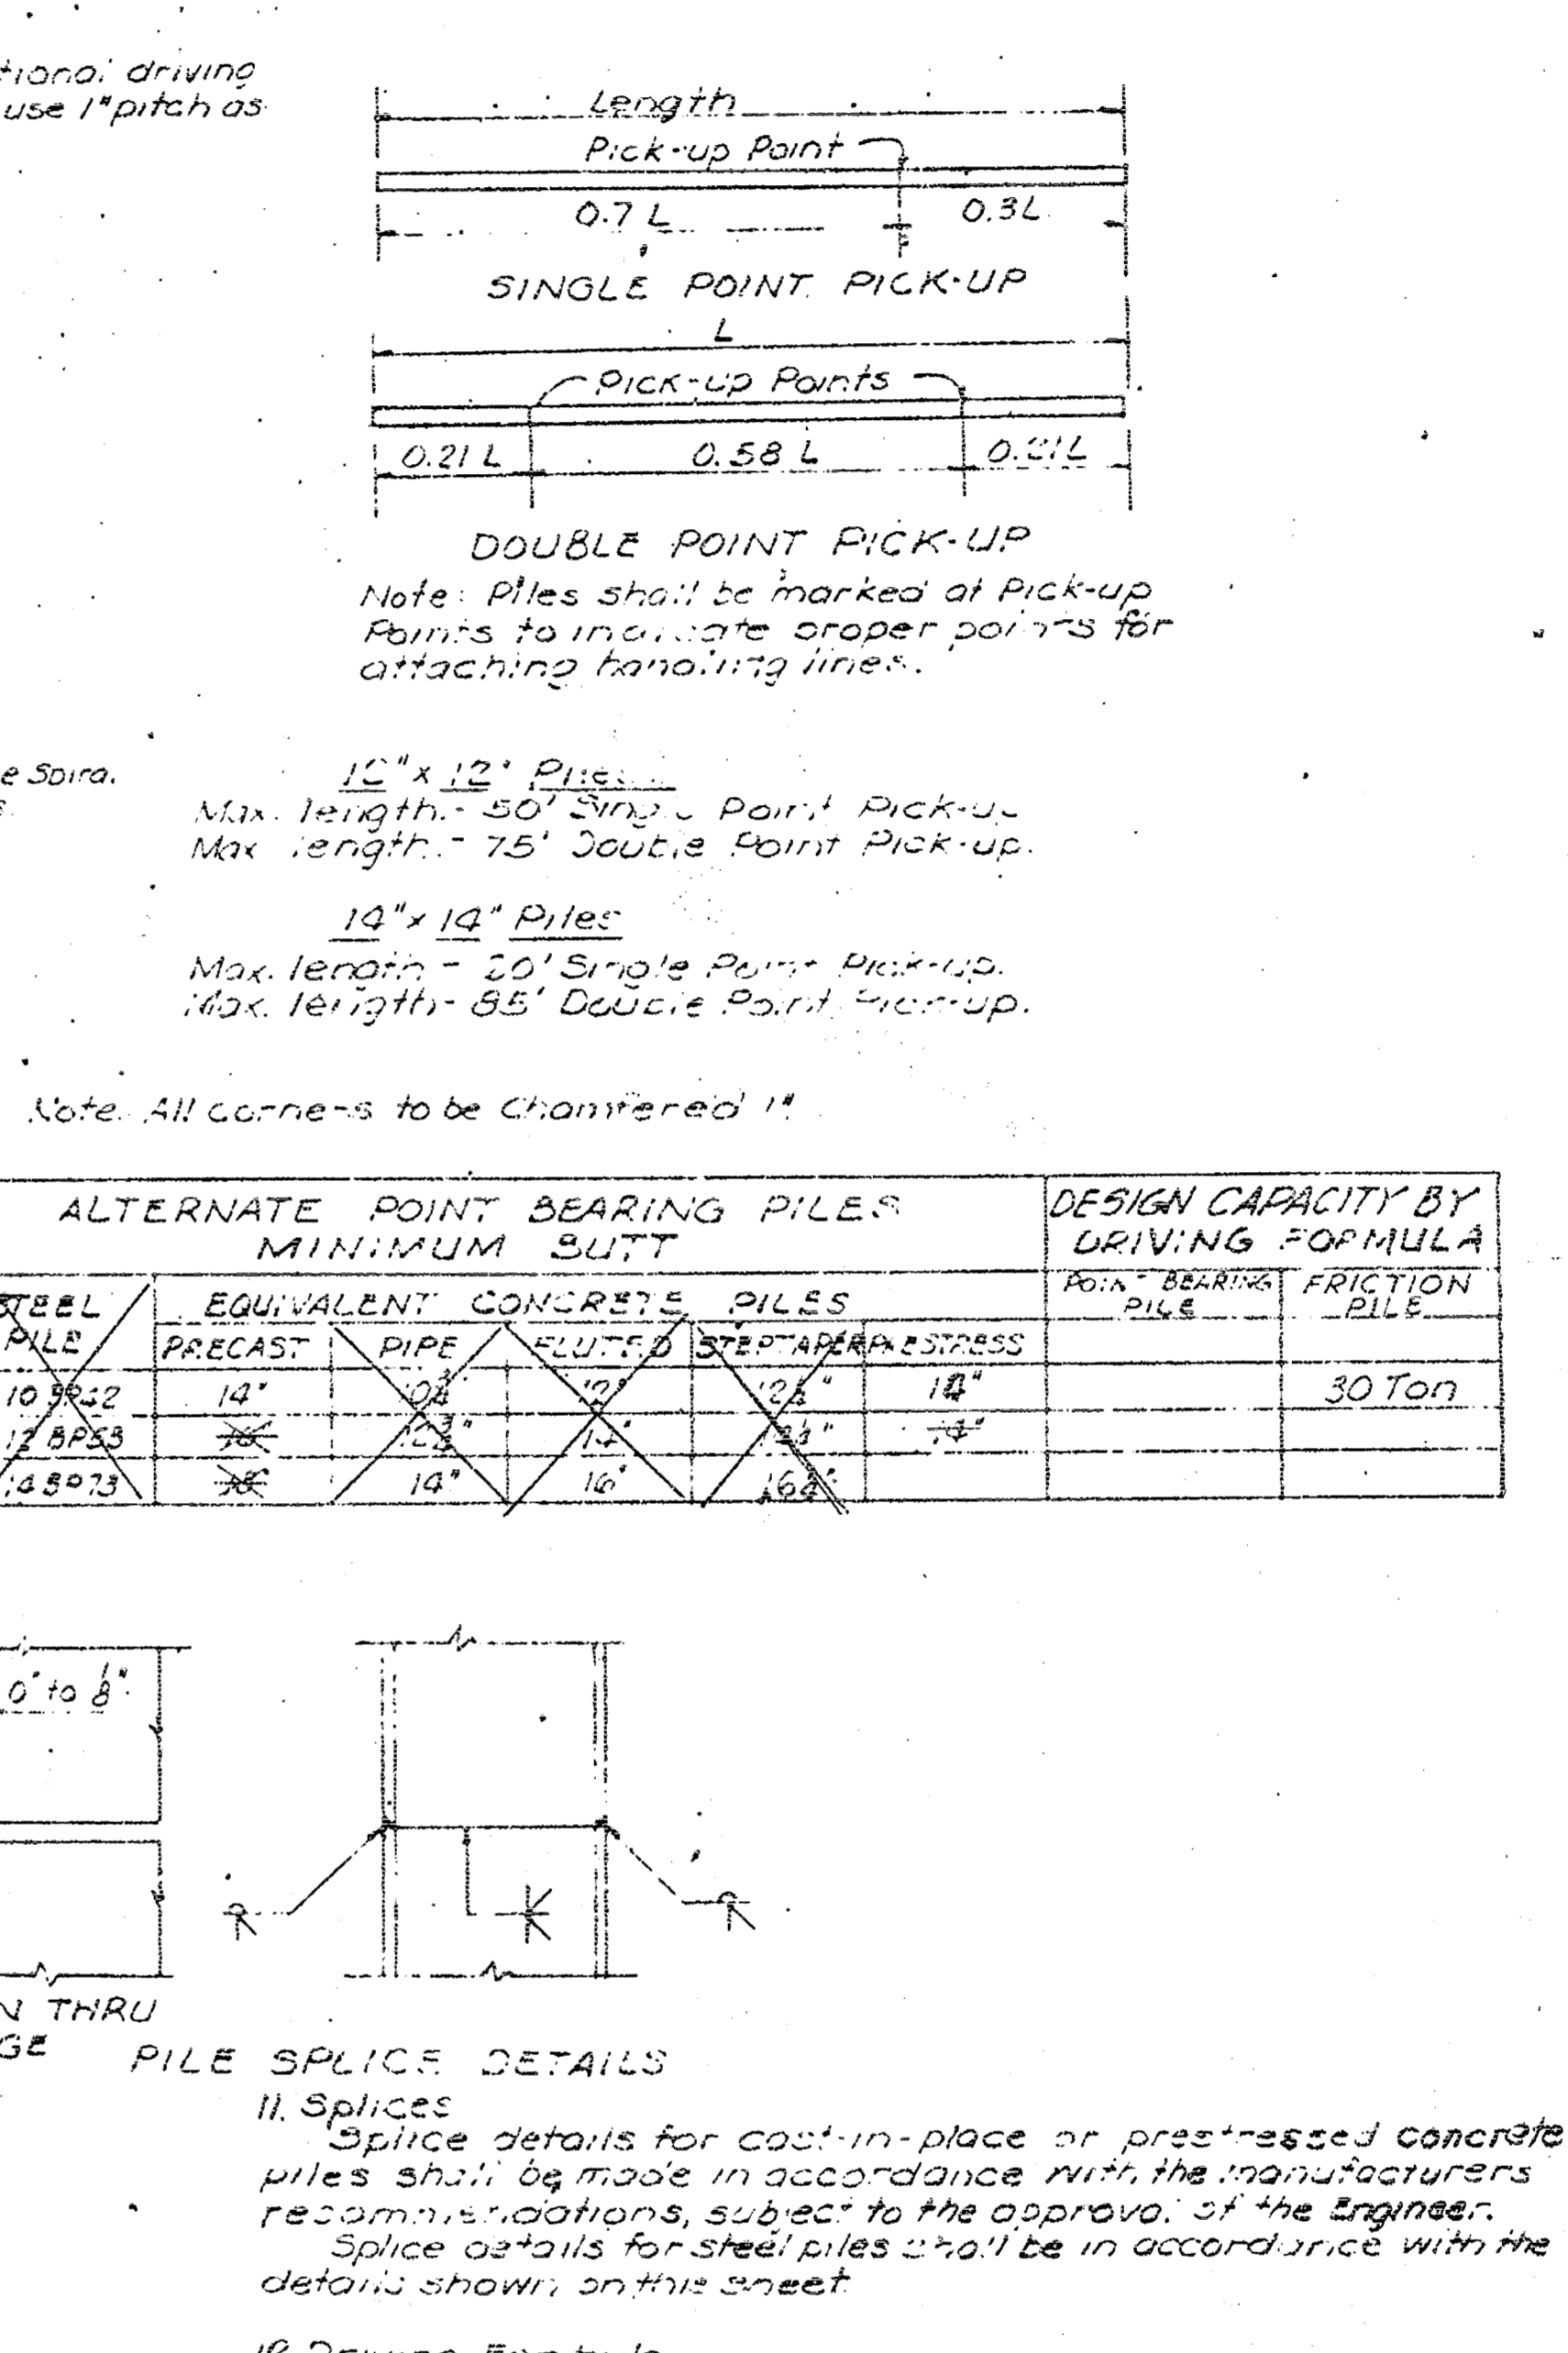 driving
use 1" pitch as
Length
Pick-up Point
0.7 L
0.3 L
SINGLE POINT PICK-UP
L
Pick-up Points
0.21 L
0.58 L
0.21 L
DOUBLE POINT PICK-UP
Note: Piles shall be marked at Pick-up
Points to indicate proper points for
attaching handling lines.
12" x 12" Piles
Max. length - 50' Single Point Pick-up
Max length - 75' Double Point Pick-up.
14" x 14" Piles
Max. length - Single Point Pick-up.
Max. length - 85' Double Point Pick-up.
Note. All corners to be Chamfered 1"
ALTERNATE POINT BEARING PILES
MINIMUM BUTT
DESIGN CAPACITY BY
DRIVING FORMULA
STEEL
PILE
EQUIVALENT CONCRETE PILES
POINT BEARING
PILE
FRICTION
PILE
PRECAST
PIPE
FLUTED
STEPTAPER
PRESTRESS
14"
12"
30 Ton
12 BP53
14"
14"
14 BP73
14"
16"
0" to 1/8"
THRU
PILE SPLICE DETAILS
11. Splices
Splice details for cast-in-place or prestressed concrete
piles shall be made in accordance with the manufacturers
recommendations, subject to the approval of the Engineer.
Splice details for steel piles shall be in accordance with the
details shown on this sheet